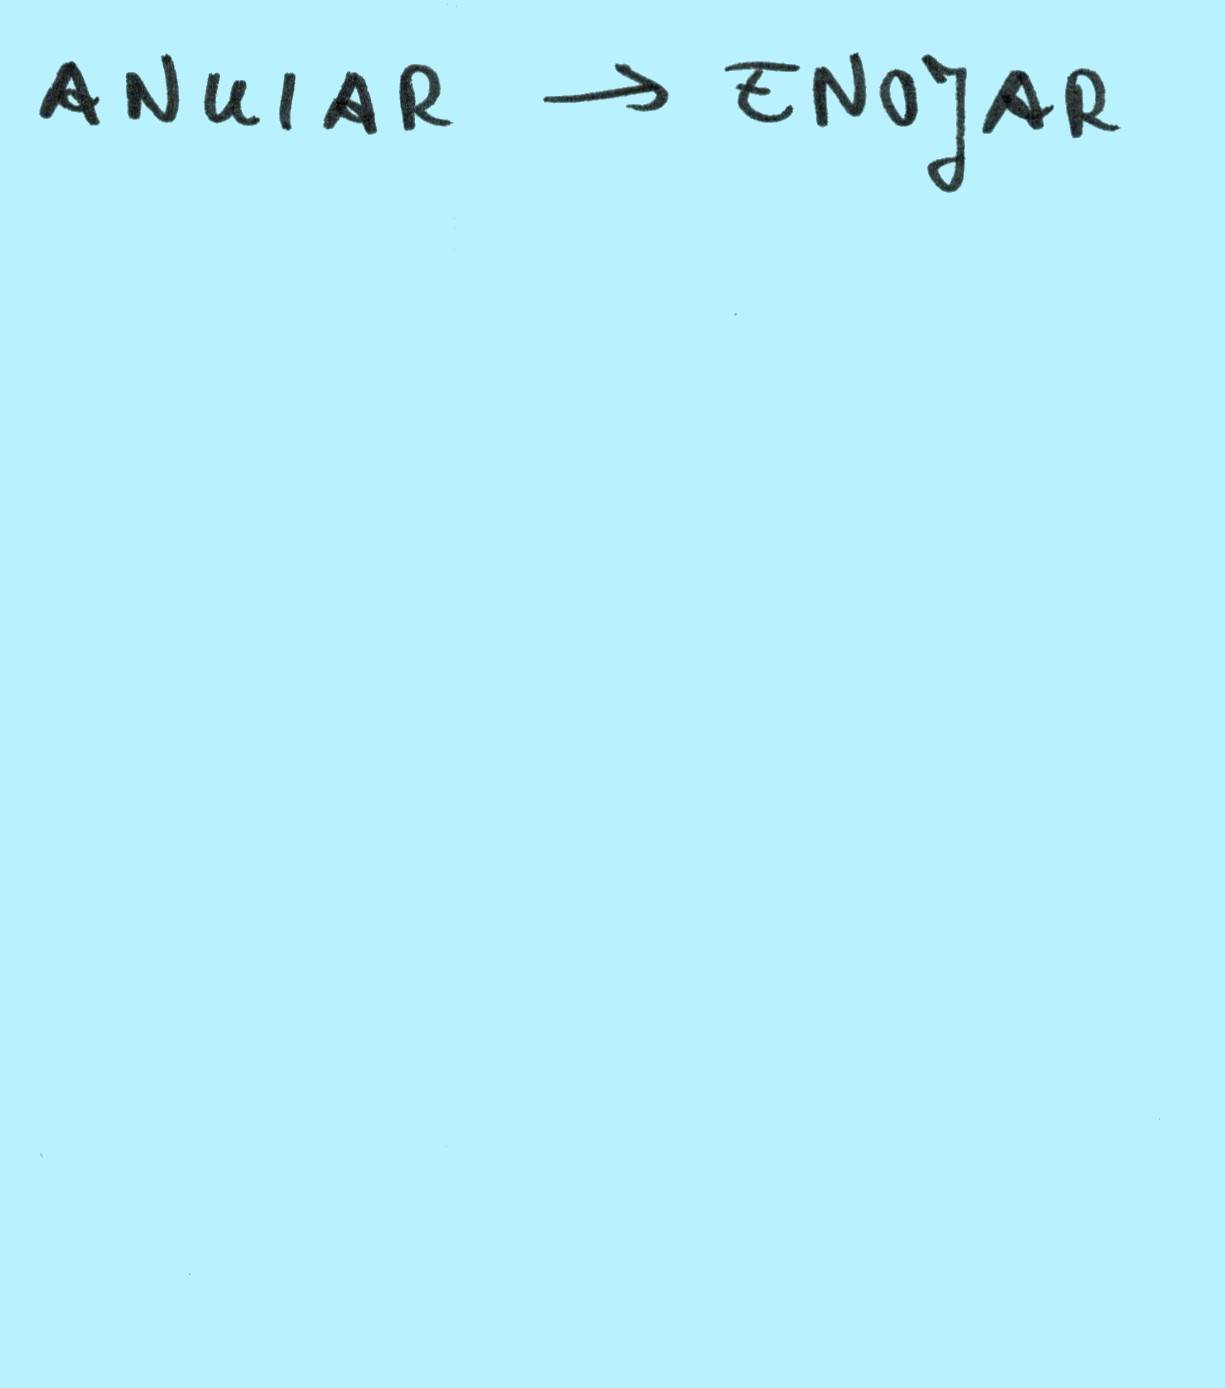 ANUIAR → ENOJAR